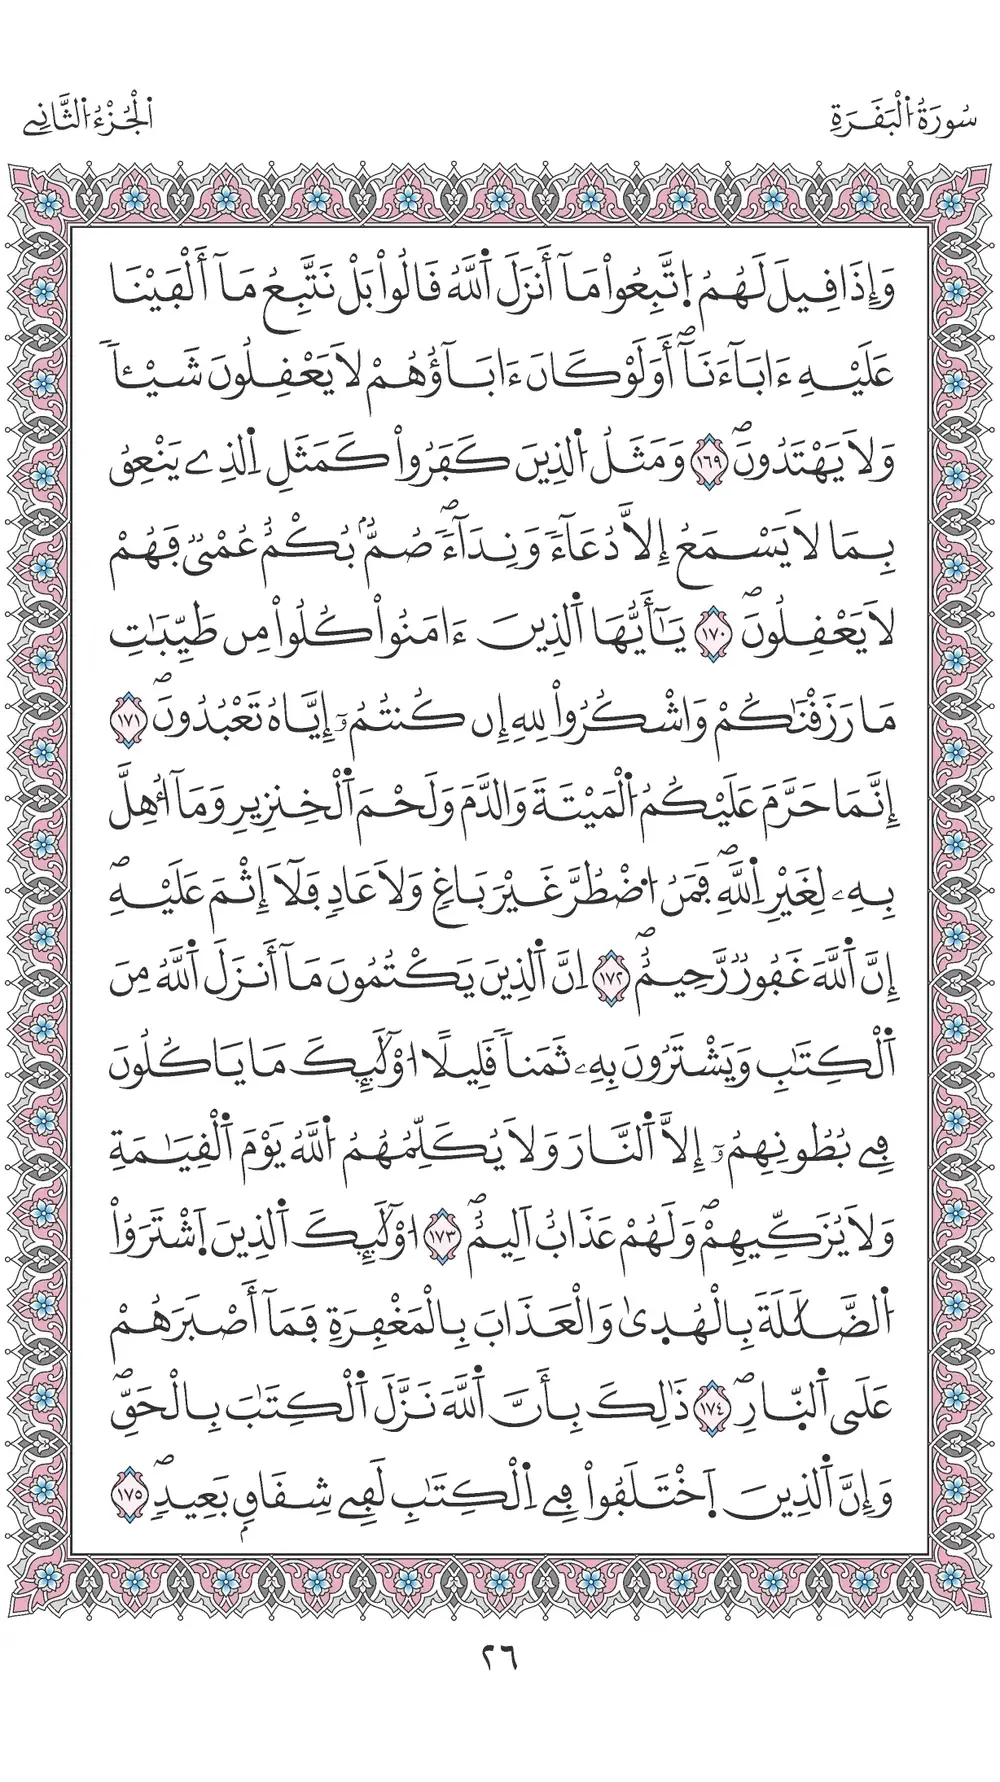 سُورَةُ اُ۬لْبَقَرَةِ
اَ۬لْجُزْءُ اُ۬لثَّانِے
وَإِذَا قِيلَ لَهُمُ اُ۪تَّبِعُواْ مَآ أَنزَلَ اَ۬للَّهُ قَالُواْ بَلْ نَتَّبِعُ مَآ أَلْفَيْنَا
عَلَيْهِ ءَابَآءَنَآۖ أَوَلَوْ كَانَ ءَابَآؤُهُمْ لَا يَعْقِلُونَ شَيْـٔاٗ
وَلَا يَهْتَدُونَۖ ١٦٩ وَمَثَلُ اُ۬لذِينَ كَفَرُواْ كَمَثَلِ اِ۬لذِے يَنْعِقُ
بِمَا لَا يَسْمَعُ إِلَّا دُعَآءٗ وَنِدَآءٗۖ صُمُّۢ بُكْمٌ عُمْيٞ فَهُمْ
لَا يَعْقِلُونَۖ ١٧٠ يَٰٓأَيُّهَا اَ۬لذِينَ ءَامَنُواْ كُلُواْ مِن طَيِّبَٰتِ
مَا رَزَقْنَٰكُمْ وَاشْكُرُواْ لِلهِ إِن كُنتُمُۥٓ إِيَّاهُ تَعْبُدُونَۖ ١٧١
إِنَّمَا حَرَّمَ عَلَيْكُمُ اُ۬لْمَيْتَةَ وَالدَّمَ وَلَحْمَ اَ۬لْخِنزِيرِ وَمَآ أُهِلَّ
بِهِۦ لِغَيْرِ اِ۬للَّهِۖ فَمَنُ اُ۟ضْطُرَّ غَيْرَ بَاغٖ وَلَا عَادٖ فَلَآ إِثْمَ عَلَيْهِۖ
إِنَّ اَ۬للَّهَ غَفُورٞ رَّحِيمٌۖ ١٧٢ اِنَّ اَ۬لذِينَ يَكْتُمُونَ مَآ أَنزَلَ اَ۬للَّهُ مِنَ
اَ۬لْكِتَٰبِ وَيَشْتَرُونَ بِهِۦ ثَمَناٗ قَلِيلًا اُوْلَٰٓئِكَ مَا يَاكُلُونَ
فِے بُطُونِهِمُۥٓ إِلَّا اَ۬لنَّارَ وَلَا يُكَلِّمُهُمُ اُ۬للَّهُ يَوْمَ اَ۬لْقِيَٰمَةِ
وَلَا يُزَكِّيهِمْۖ وَلَهُمْ عَذَابٌ اَلِيمٌۖ ١٧٣ اُوْلَٰٓئِكَ اَ۬لذِينَ اَ۪شْتَرَوُاْ
اُ۬لضَّلَٰلَةَ بِالْهُدۭىٰ وَالْعَذَابَ بِالْمَغْفِرَةِ فَمَآ أَصْبَرَهُمْ
عَلَى اَ۬لنّ۪ارِۖ ١٧٤ ذَٰلِكَ بِأَنَّ اَ۬للَّهَ نَزَّلَ اَ۬لْكِتَٰبَ بِالْحَقِّۖ
وَإِنَّ اَ۬لذِينَ اَ۪خْتَلَفُواْ فِے اِ۬لْكِتَٰبِ لَفِے شِقَاقِۢ بَعِيدٖۖ ١٧٥
٢٦